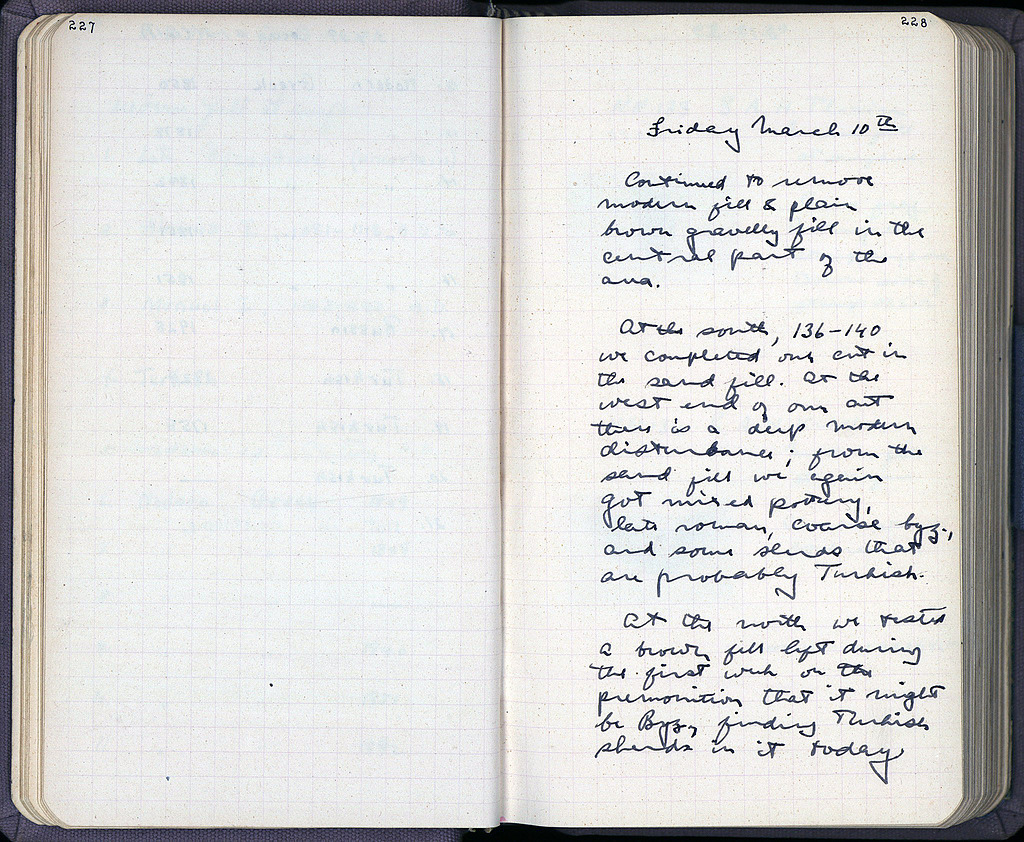 227
228
Friday March 10th
Continued to remove
modern fill & plain
brown gravelly fill in the
central part of the
area.
At the south, 136-140
we completed our cut in
the sand fill. At the
west end of our cut
there is a deep modern
disturbance; from the
sand fill we again
got mixed pottery,
late roman, coarse byz.,
and some sherds that
are probably Turkish.
At the north we tested
a brown fill left during
the first week on the
premonition that it might
be Byz, finding Turkish
sherds in it today